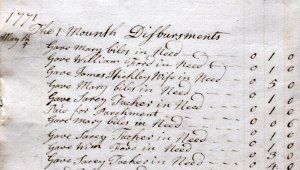 1771 The 1 Mounth Disbursments
May th
Gave Mary Giles in Need 0 1 0
Gave William Ford in Need 0 1
Gave James Stickley Wife in Need 0 1
Gave Mary Giles in Need 0 5
Gave Sarey Tucker in Need 0 1
Paid for Parchment 0 1
Gave Mary Giles in Need 0 0
Gave Sarey Tucker in Need 0 1
Gave Wim Ford in Need 0 1
Gave Sarey Tucker in Need 0 3